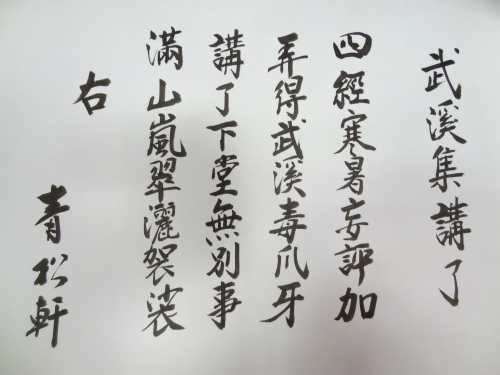 武溪集講了
四經寒暑妄評加
弄得武溪毒爪牙
講了下堂無別事
滿山嵐翠灑袈裟
右
青松軒